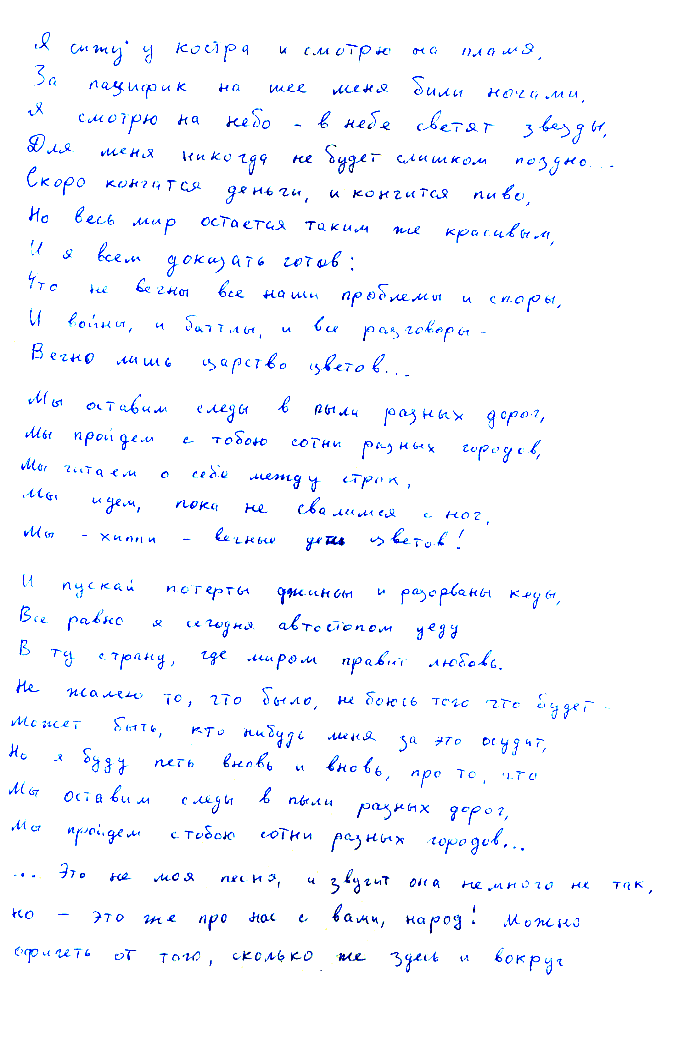 Я сижу у костра и смотрю на пламя,
За пацифик на шее меня били ногами,
Я смотрю на небо - в небе светят звезды,
Для меня никогда не будет слишком поздно...
Скоро кончится деньги, и кончится пиво,
Но весь мир остается таким же красивым,
И я всем доказать готов:
Что не вечны все наши проблемы и споры,
И войны, и баттлы, и все разговоры -
Вечно лишь царство цветов...
Мы оставим следы в пыли разных дорог,
Мы пройдем с тобою сотни разных городов,
Мы читаем о себе между строк,
Мы идем, пока не свалимся с ног,
Мы - хиппи - вечные дети цветов!
И пускай потерты джинсы и разорваны кеды,
Все равно я сегодня автостопом уеду
В ту страну, где миром правит любовь.
Не жалею то, что было, не боюсь того что будет -
Может быть, кто нибудь меня за это осудит,
Но я буду петь вновь и вновь, про то, что
Мы оставим следы в пыли разных дорог,
Мы пройдем с тобою сотни разных городов...
... Это не моя песня, и звучит она немного не так,
но - это же про нас с вами, народ! Можно
офигеть от того, сколько же здесь и вокруг